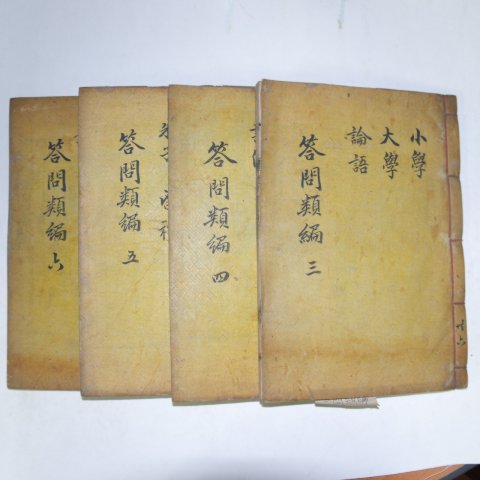 共六
小學
大學
論語
答問類編 三
答問類編 四
答問類編 五
答問類編 六